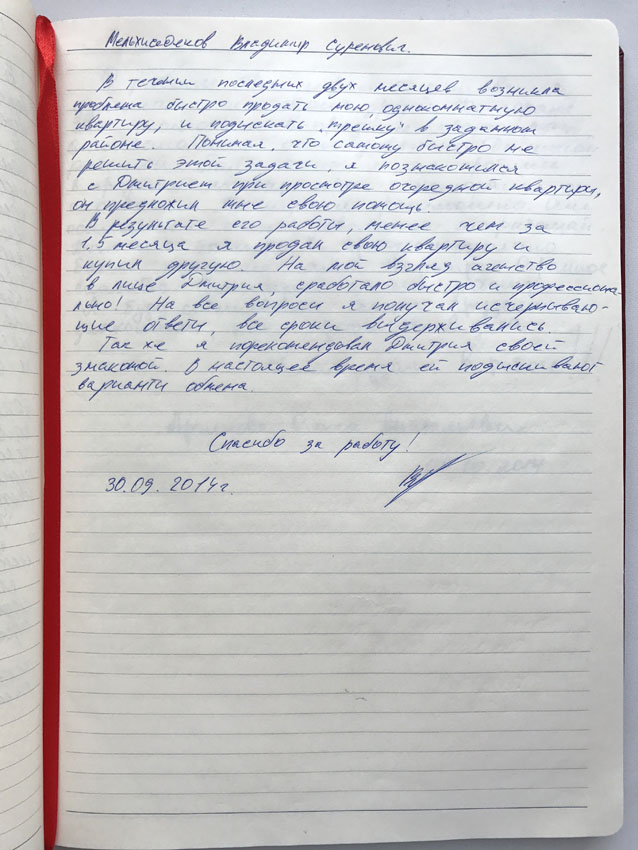 Мелхиседеков Владимир Суренович.
В течении последних двух месяцев возникла
проблема быстро продать мою, однокомнатную
квартиру, и подыскать "трешку" в заданном
районе. Понимая, что самому быстро не
решить этой задачи, я познакомился
с Дмитрием при просмотре очередной квартиры,
он предложил мне свою помощь.
В результате его работы, менее чем за
1,5 месяца я продал свою квартиру и
купил другую. На мой взгляд агенство
в лице Дмитрия, сработало быстро и профессиона-
льно! На все вопросы я получал исчерпываю-
щие ответы, все сроки выдерживались.
Так же я порекомендовал Дмитрия своей
знакомой. В настоящее время ей подыскивают
варианты обмена.
Спасибо за работу!
30.09.2014г.